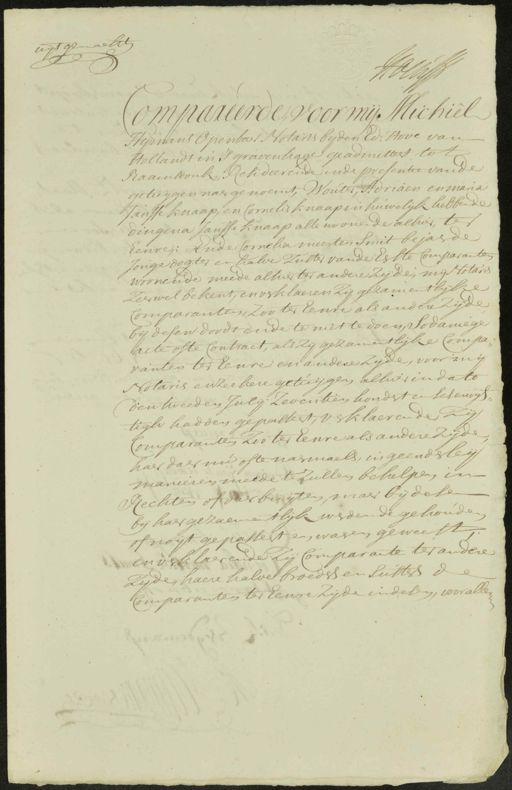 uytgemaakt
Compareerde voor mij Michiël
Thijmans Openbaar Notaris bij den Ed: Hove van
Hollandt in s'gravenhage geadmitteert tot
Raamsdonk Resideerende in de presentie van de
getuijgen naargenoemt, Wouter, Adriaen en maria
Janssse knaap, en Cornelis knaap in huwelijk hebbende
dingena Jansse knaap alle wonende alhier, ter
Eenre; Ende Cornelia meerten Smit bejaerde
Jonge dogter en halve Suster van de Eerste Comparanten
wonende meede alhier ter andere Zijde; mij Notaris
zeer wel bekent, en verklaeren Zij gezamentlijke
Comparanten, zoo ter Eenre als andere Zijde
bij desen doodt ende te niet te doen, Sodanige
acte ofte Contract, als zij gezamentlijke Compa-
ranten ter Eenre en andere zijde, voor mij
Notaris en zekere getuijgen, alhier in dato
den tweeden Julij Zeventien hondert en
hadden gepasseert, verklaerende Zij
Comparanten Zoo ter Eenre als andere Zijde,
haer daer nu ofte naermaels, in geenderleij
manieren meede te Zullen behelpen, in
Rechten of daer buijten, maer bij deke
bij haer gezamentlijk werden de gehouden
of noijt gepasseert en waren geweest;
en verklaerende Zij Comparante ter andere
Zijde, haere halve broeders en Susters de
Comparanten ter Eenre Zijde in delen, voor alle